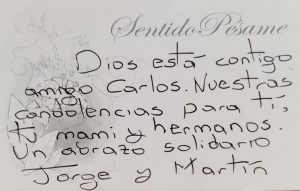 Sentido Pésame
Dios está contigo
amigo Carlos. Nuestras
condolencias para tí,
tu mami y hermanos.
Un abrazo solidario
Jorge y Martín